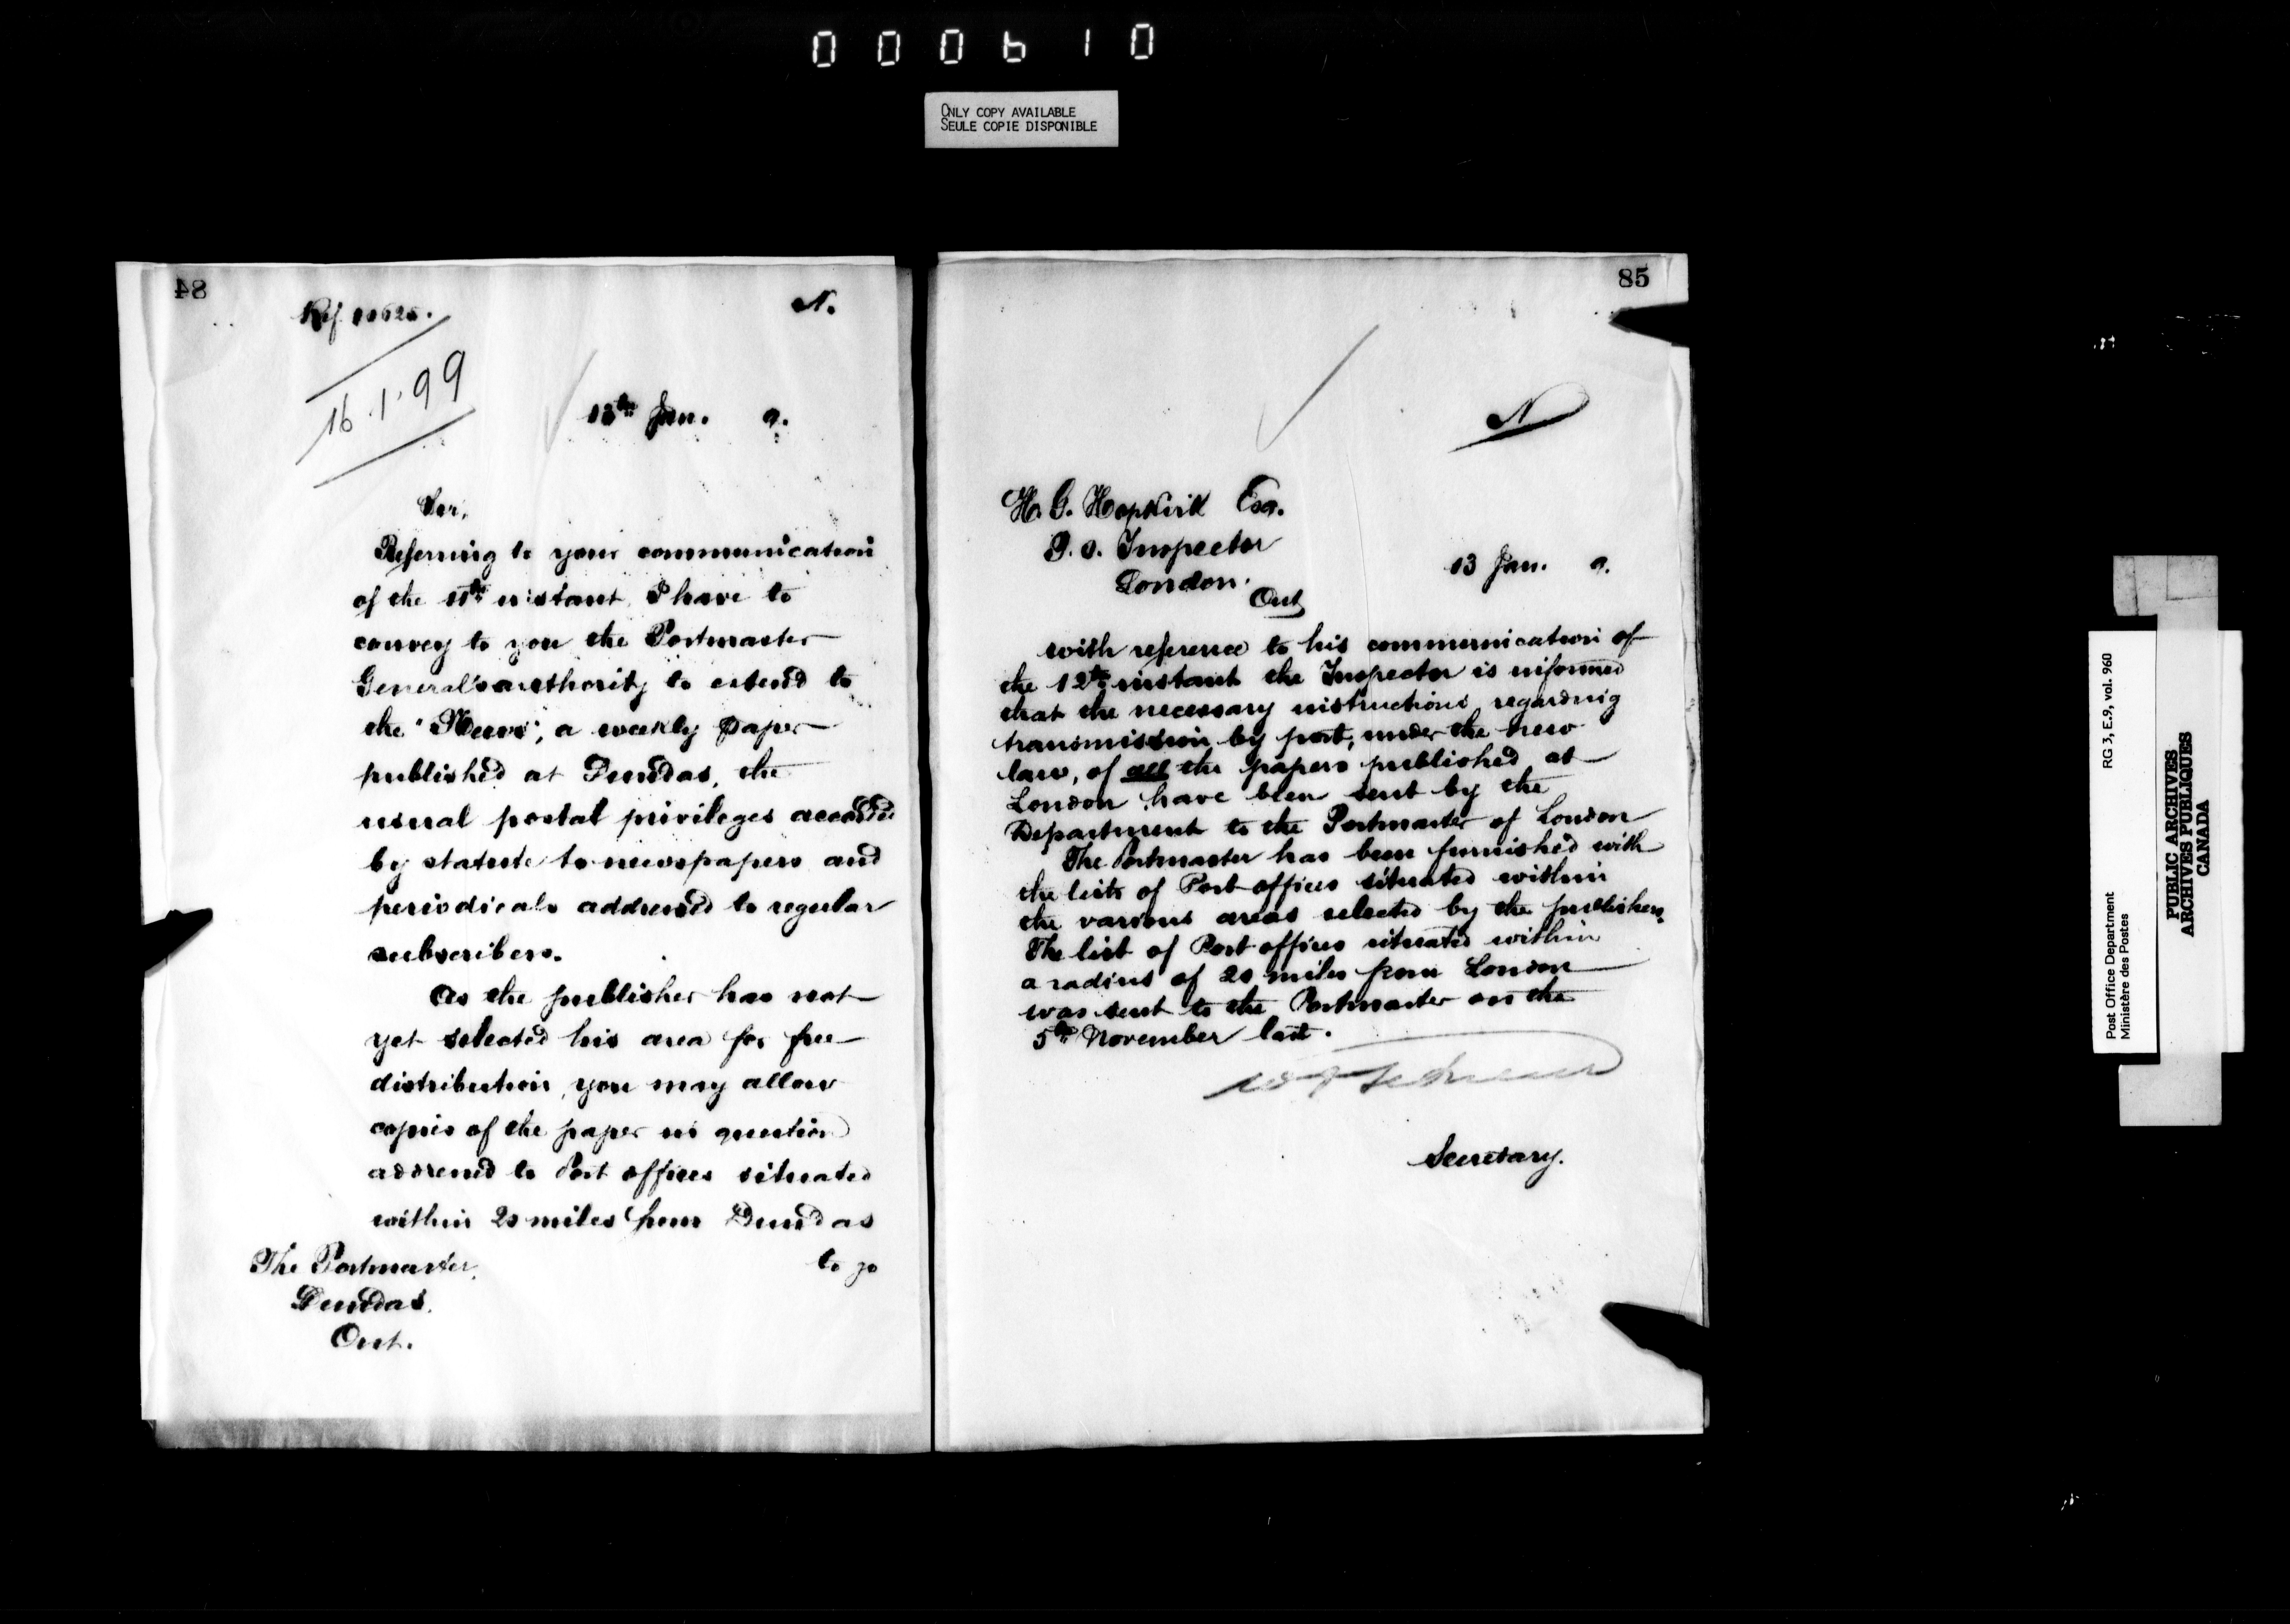 000610
ONLY COPY AVAILABLE
SEULE COPIE DISPONIBLE
84
N.
16.1.99
13th Jan. 9.
Sir,
Referring to your communication
of the 11th instant, I have to
convey to you the Postmaster
General's authority to extend to
the "News", a weekly paper
published at Dundas, the
usual postal privileges accorded
by statute to newspapers and
periodicals addressed to regular
subscribers.
As the publisher has not
yet selected his area for free
distribution, you may allow
copies of the paper in question
addressed to Post offices situated
within 20 miles from Dundas
to go
The Postmaster,
Dundas.
Ont.
85
N
H. G. Hopkirk Esq.
P. O. Inspector
London.
Ont
13 Jan. 9.
with reference to his communication of
the 12th instant the Inspector is informed
that the necessary instructions regarding
transmission by post, under the new
law, of all the papers published at
London have been sent by the
Department to the Postmaster of London
The Postmaster has been furnished with
the lists of Post offices situated within
the various areas selected by the publishers.
The list of Post offices situated within
a radius of 20 miles from London
was sent to the Postmaster on the
5th November last.
Secretary.
Post Office Department RG 3, E.9, vol. 960
Ministère des Postes
PUBLIC ARCHIVES
ARCHIVES PUBLIQUES
CANADA